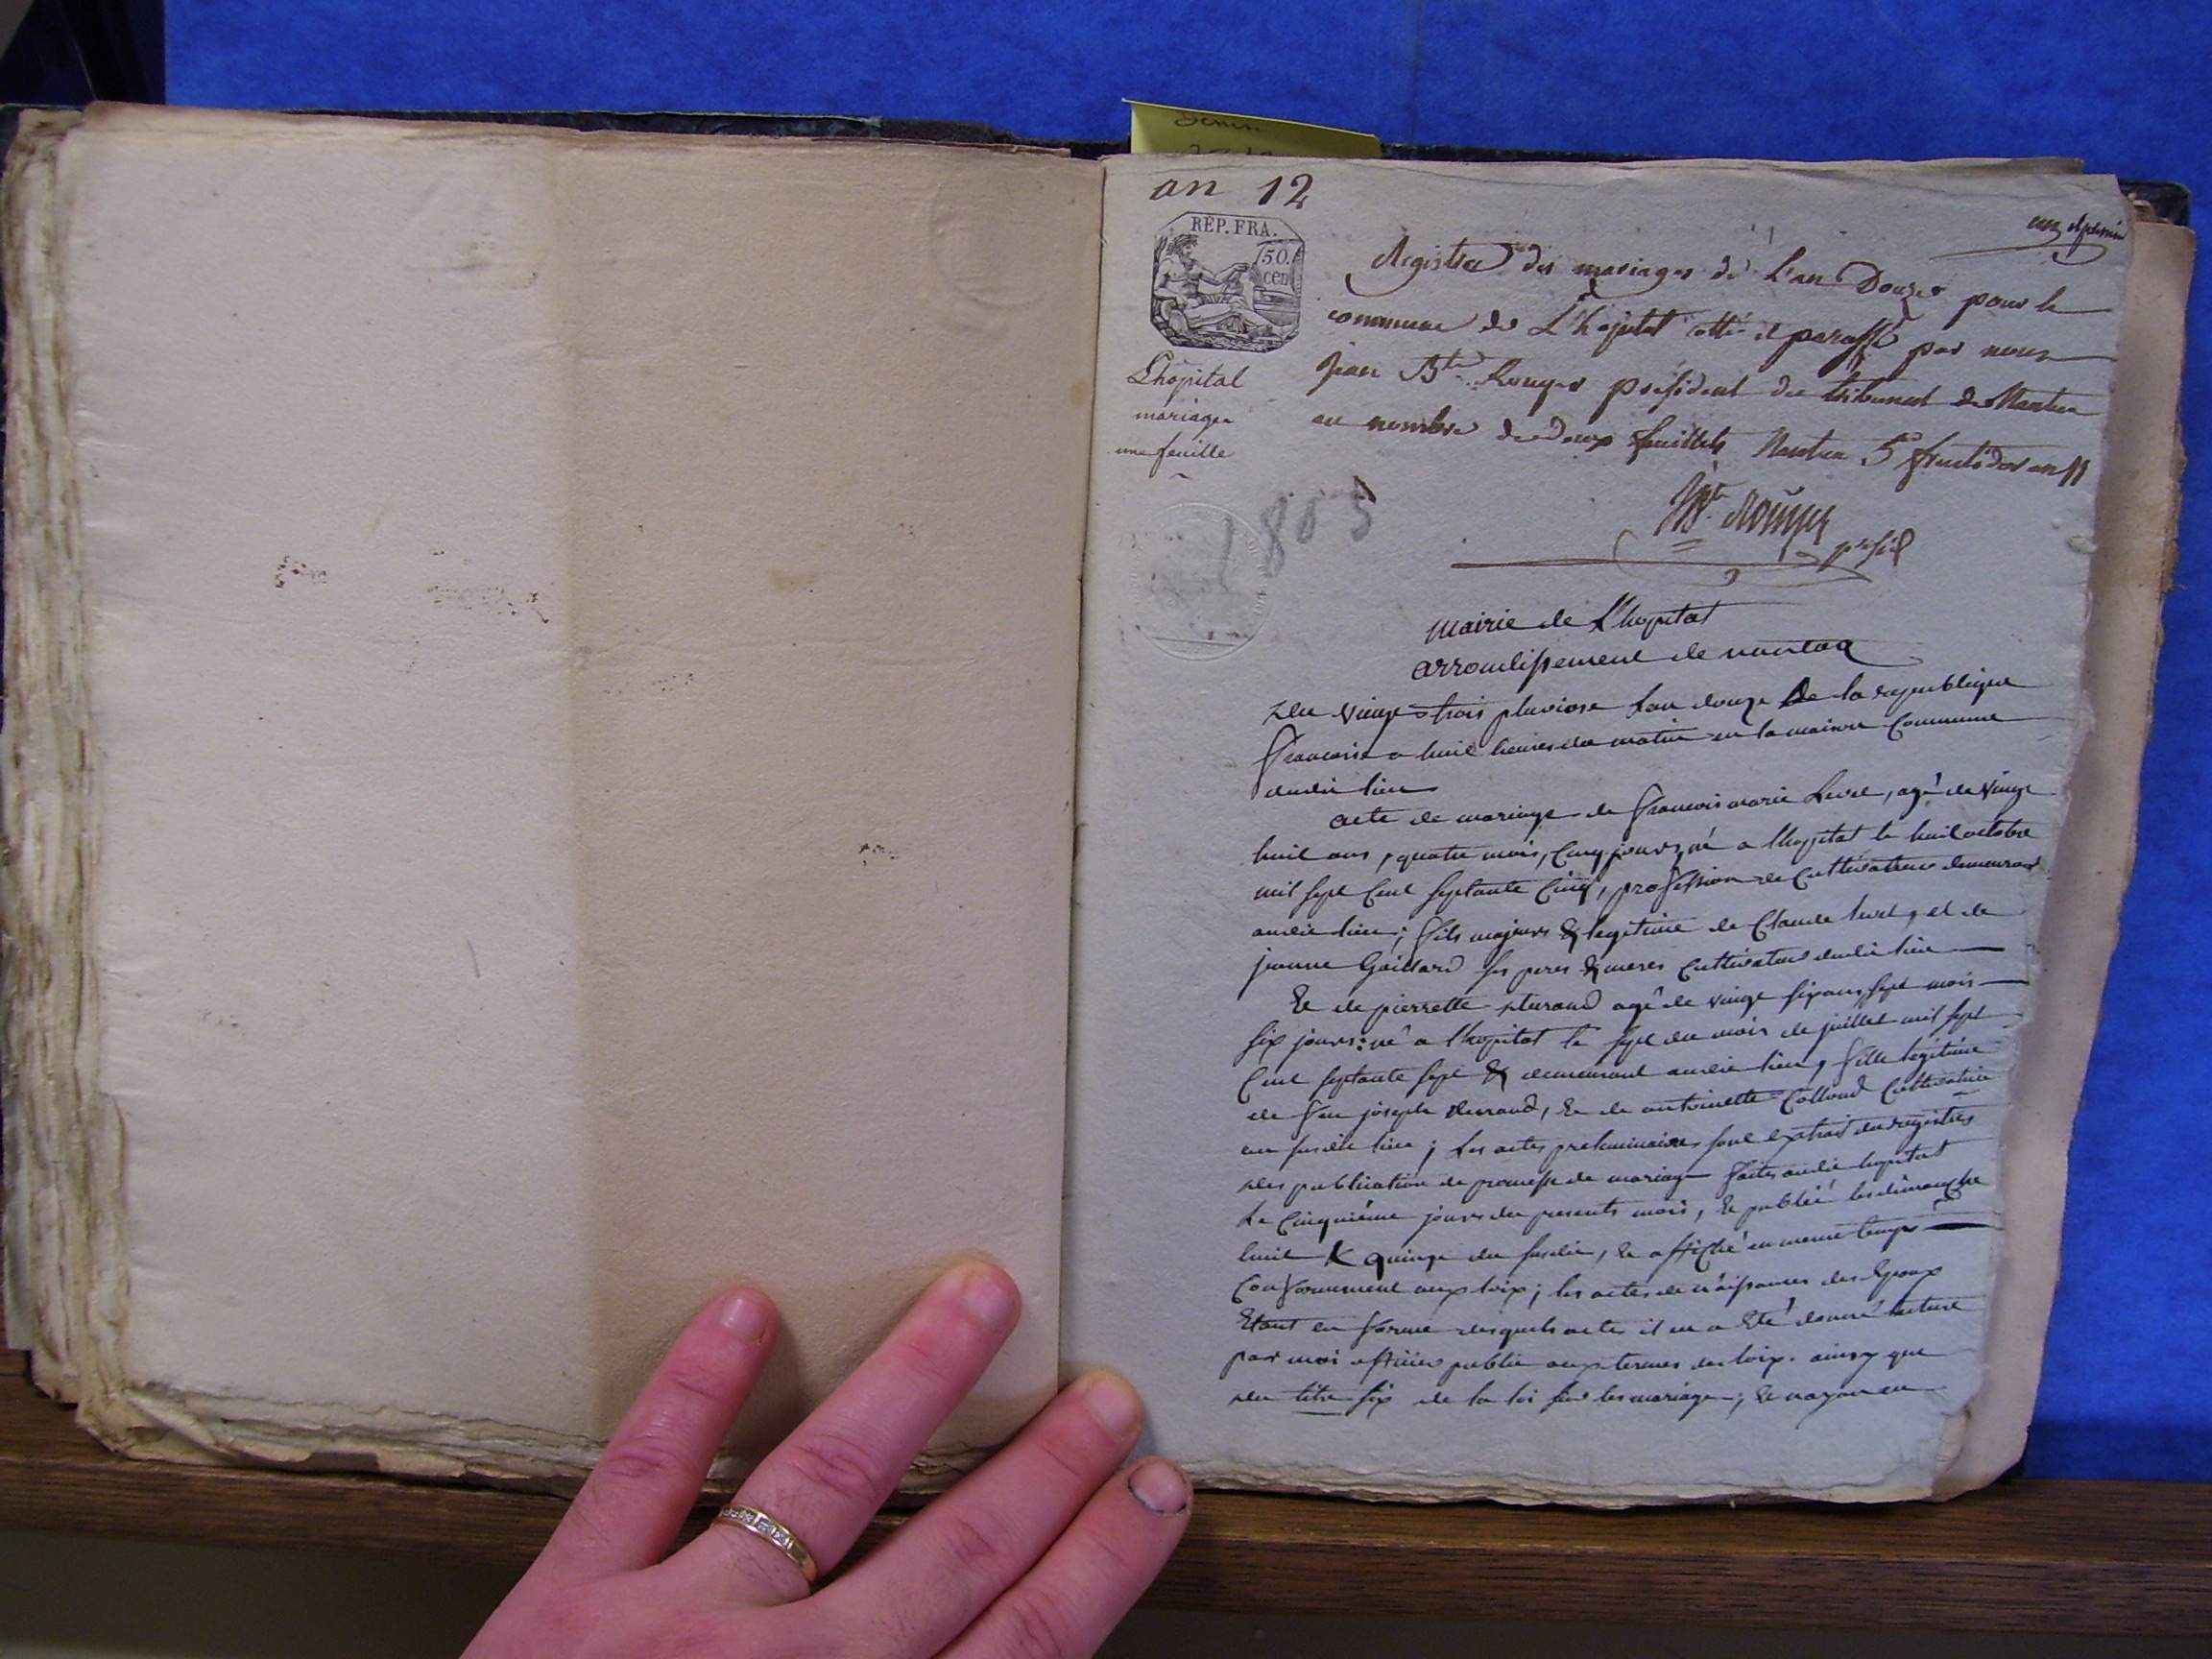 an 12
REP. FRA.
50.
cen
L'hôpital
mariages
une feuille
Registre des mariages de L'an Douze pour la
commune de L'hopital cotté et paraffé par nous
Jean Bte Rouyer président du tribunal de Nantua
au nombre de deux feuillets Nantua 5 fructidor an 11
presid
1803
mairie de L'hopital
arrondissement de nantua
Du vingt trois pluviose L'an douze De la republique
francaise a huit heures du matin en la maison Commune
dudit lieu
acte de mariage de francois marie Livet, agé de vingt
huit ans, quatre mois, Cinq jours, né a l'hopital le huit octobre
mil sept Cent septante Cinq, profession de Cultivateur demeurant
audit lieu; fils majeurs & legitime de Claude Livet, et de
jeanne Gaillard ses peres & meres Cultivateur dudit lieu
Et de pierrette durand agé de vingt six ans, sept mois
six jours: né a l'hopital le sept du mois de juillet mil sept
Cent septante sept & demeurant audit lieu, fille legitime
de feu joseph durand, Et de antoinette Colloud Cultivatrice
au susdit lieu; Les actes preliminaires sont extrait des registres
des publication de promesse de mariage faites audit hopital
Le Cinquième jours du presents mois, Et publié les dimanche
huit & quinze du susdit, Et affiché en meme temps
Conformement aux loix; les actes de naissances des Epoux
Etant en forme desquels actes il en a Eté donné lecture
par moi officier public aux termes des loix. ainsy que
du titre six de la loi sur les mariages; Et